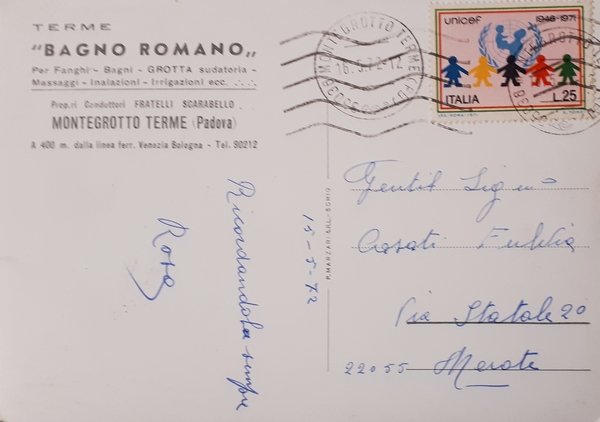 TERME
"BAGNO ROMANO"
Per Fanghi - Bagni - GROTTA sudatoria -
Massaggi - Inalazioni - Irrigazioni ecc. ....
Prop.ri Conduttori FRATELLI SCARABELLO
MONTEGROTTO TERME (Padova)
A 400 m. dalla linea ferr. Venezia Bologna - Tel. 90212
Ricordandola sempre
Rosa
15-5-72
P. MARZARI S.R.L. - SCHIO
MONTEGROTTO TERME
16.5.72-12
unicef 1946-1971
ITALIA L.25
Gentil Sig.na
Casati Fulvia
Via Statale 20
22055 Merate